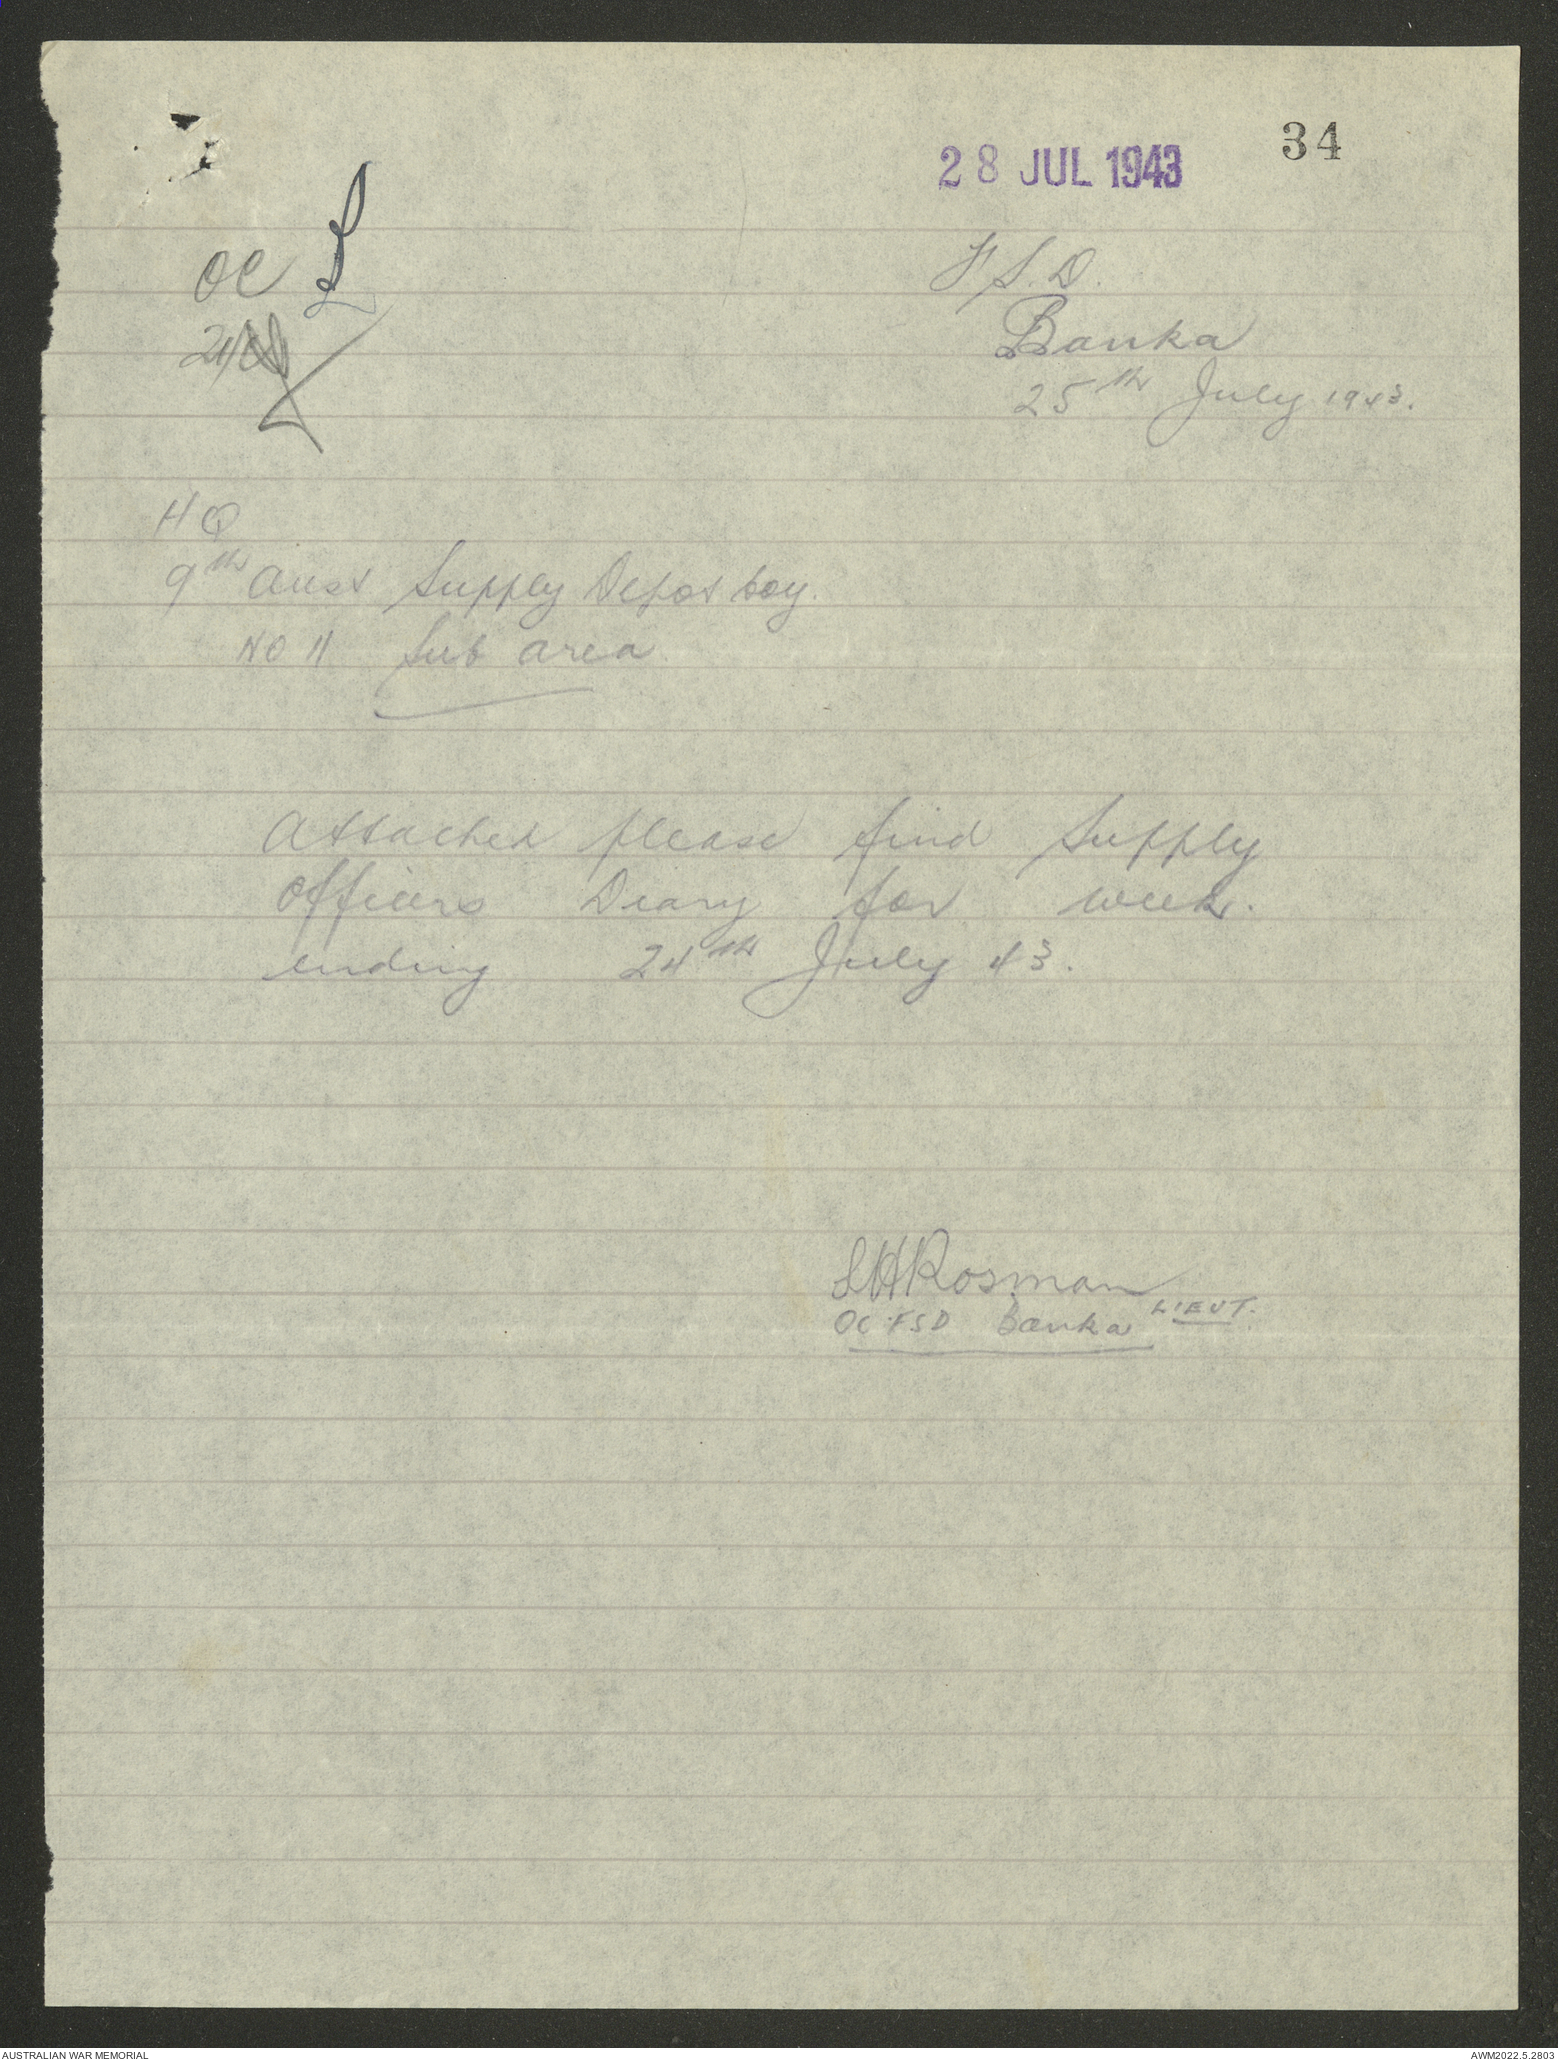 34
28 JUL 1943
OC
F S. D.
Banka
25th July 1943.
H Q
9th Aust Supply Depot Coy.
NO 11 Sub area
Attached please find Supply
Officers Diary for week.
ending 24th July 43.
LHRosman
LIEUT.
OC FSD Banka
AUSTRALIAN WAR MEMORIAL
AWM2022.5.2803